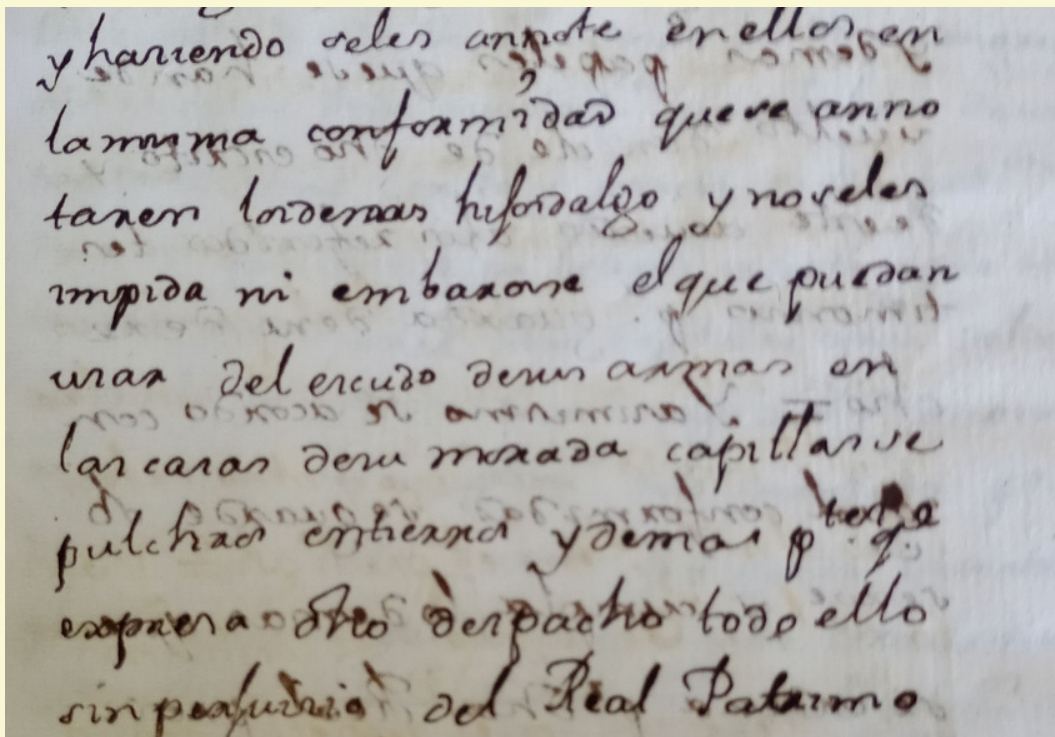 y haciendo seles annote en ellos en
la misma conformidad que se anno
taren los demas hijosdalgo y no seles
impida ni embarase el que puedan
usar del escudo de sus armas en
las casas de su morada capillas se
pulchros entierros y demas ptes q.
expresa dho despacho todo ello
sin perjuicio del Real Patrimo